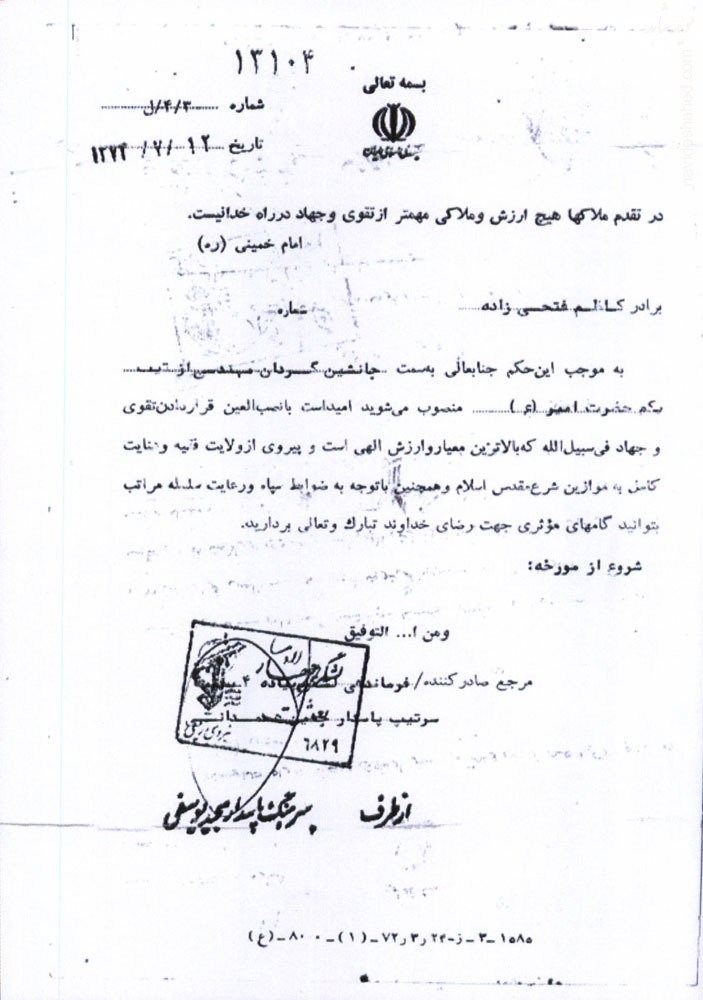 ۱۳۱۰۴
بسمه تعالی
شماره ۴/۳/ل
تاریخ ۱۲ / ۷ / ۱۳۷۴
در تقدم ملاکها هیچ ارزش وملاکی مهمتر ازتقوی وجهاد درراه خدانیست.
امام خمینی (ره)
برادر کاظم فتحی زاده شماره
به موجب این‌حکم جنابعالی به‌سمت جانشین گردان مهندسی از تیپ
یکم حضرت امیر (ع) منصوب می‌شوید امیداست بانصب‌العین قراردادن‌تقوی
و جهاد فی‌سبیل‌الله که‌بالاترین معیاروارزش الهی است و پیروی ازولایت فقیه وعنایت
کامل به موازین شرع‌مقدس اسلام وهمچنین باتوجه به ضوابط سپاه ورعایت سلسله مراتب
بتوانید گامهای مؤثری جهت رضای خداوند تبارك وتعالی بردارید.
شروع از مورخه:
ومن ا... التوفیق
مرجع صادرکننده/فرماندهی لشکر پیاده ۴
سرتیپ پاسدار همدانی
نیروی زمینی
۶۸۲۹
ازطرف سرهنگ پاسدار مجید یوسفی
۱۵۸۵-۳-ز-۲۴ر۳ر۷۲-(۱)-۸۰۰۰-(ع)
navideshahed.com